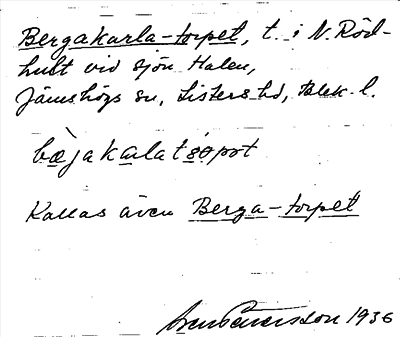 Bergakarla-torpet, t. i N. Röd-
hult vid sjön Halen,
Jämshögs sn, Listers hd, Blek. l.
bæjakalatsøpət
Kallas även Berga-torpet
1936